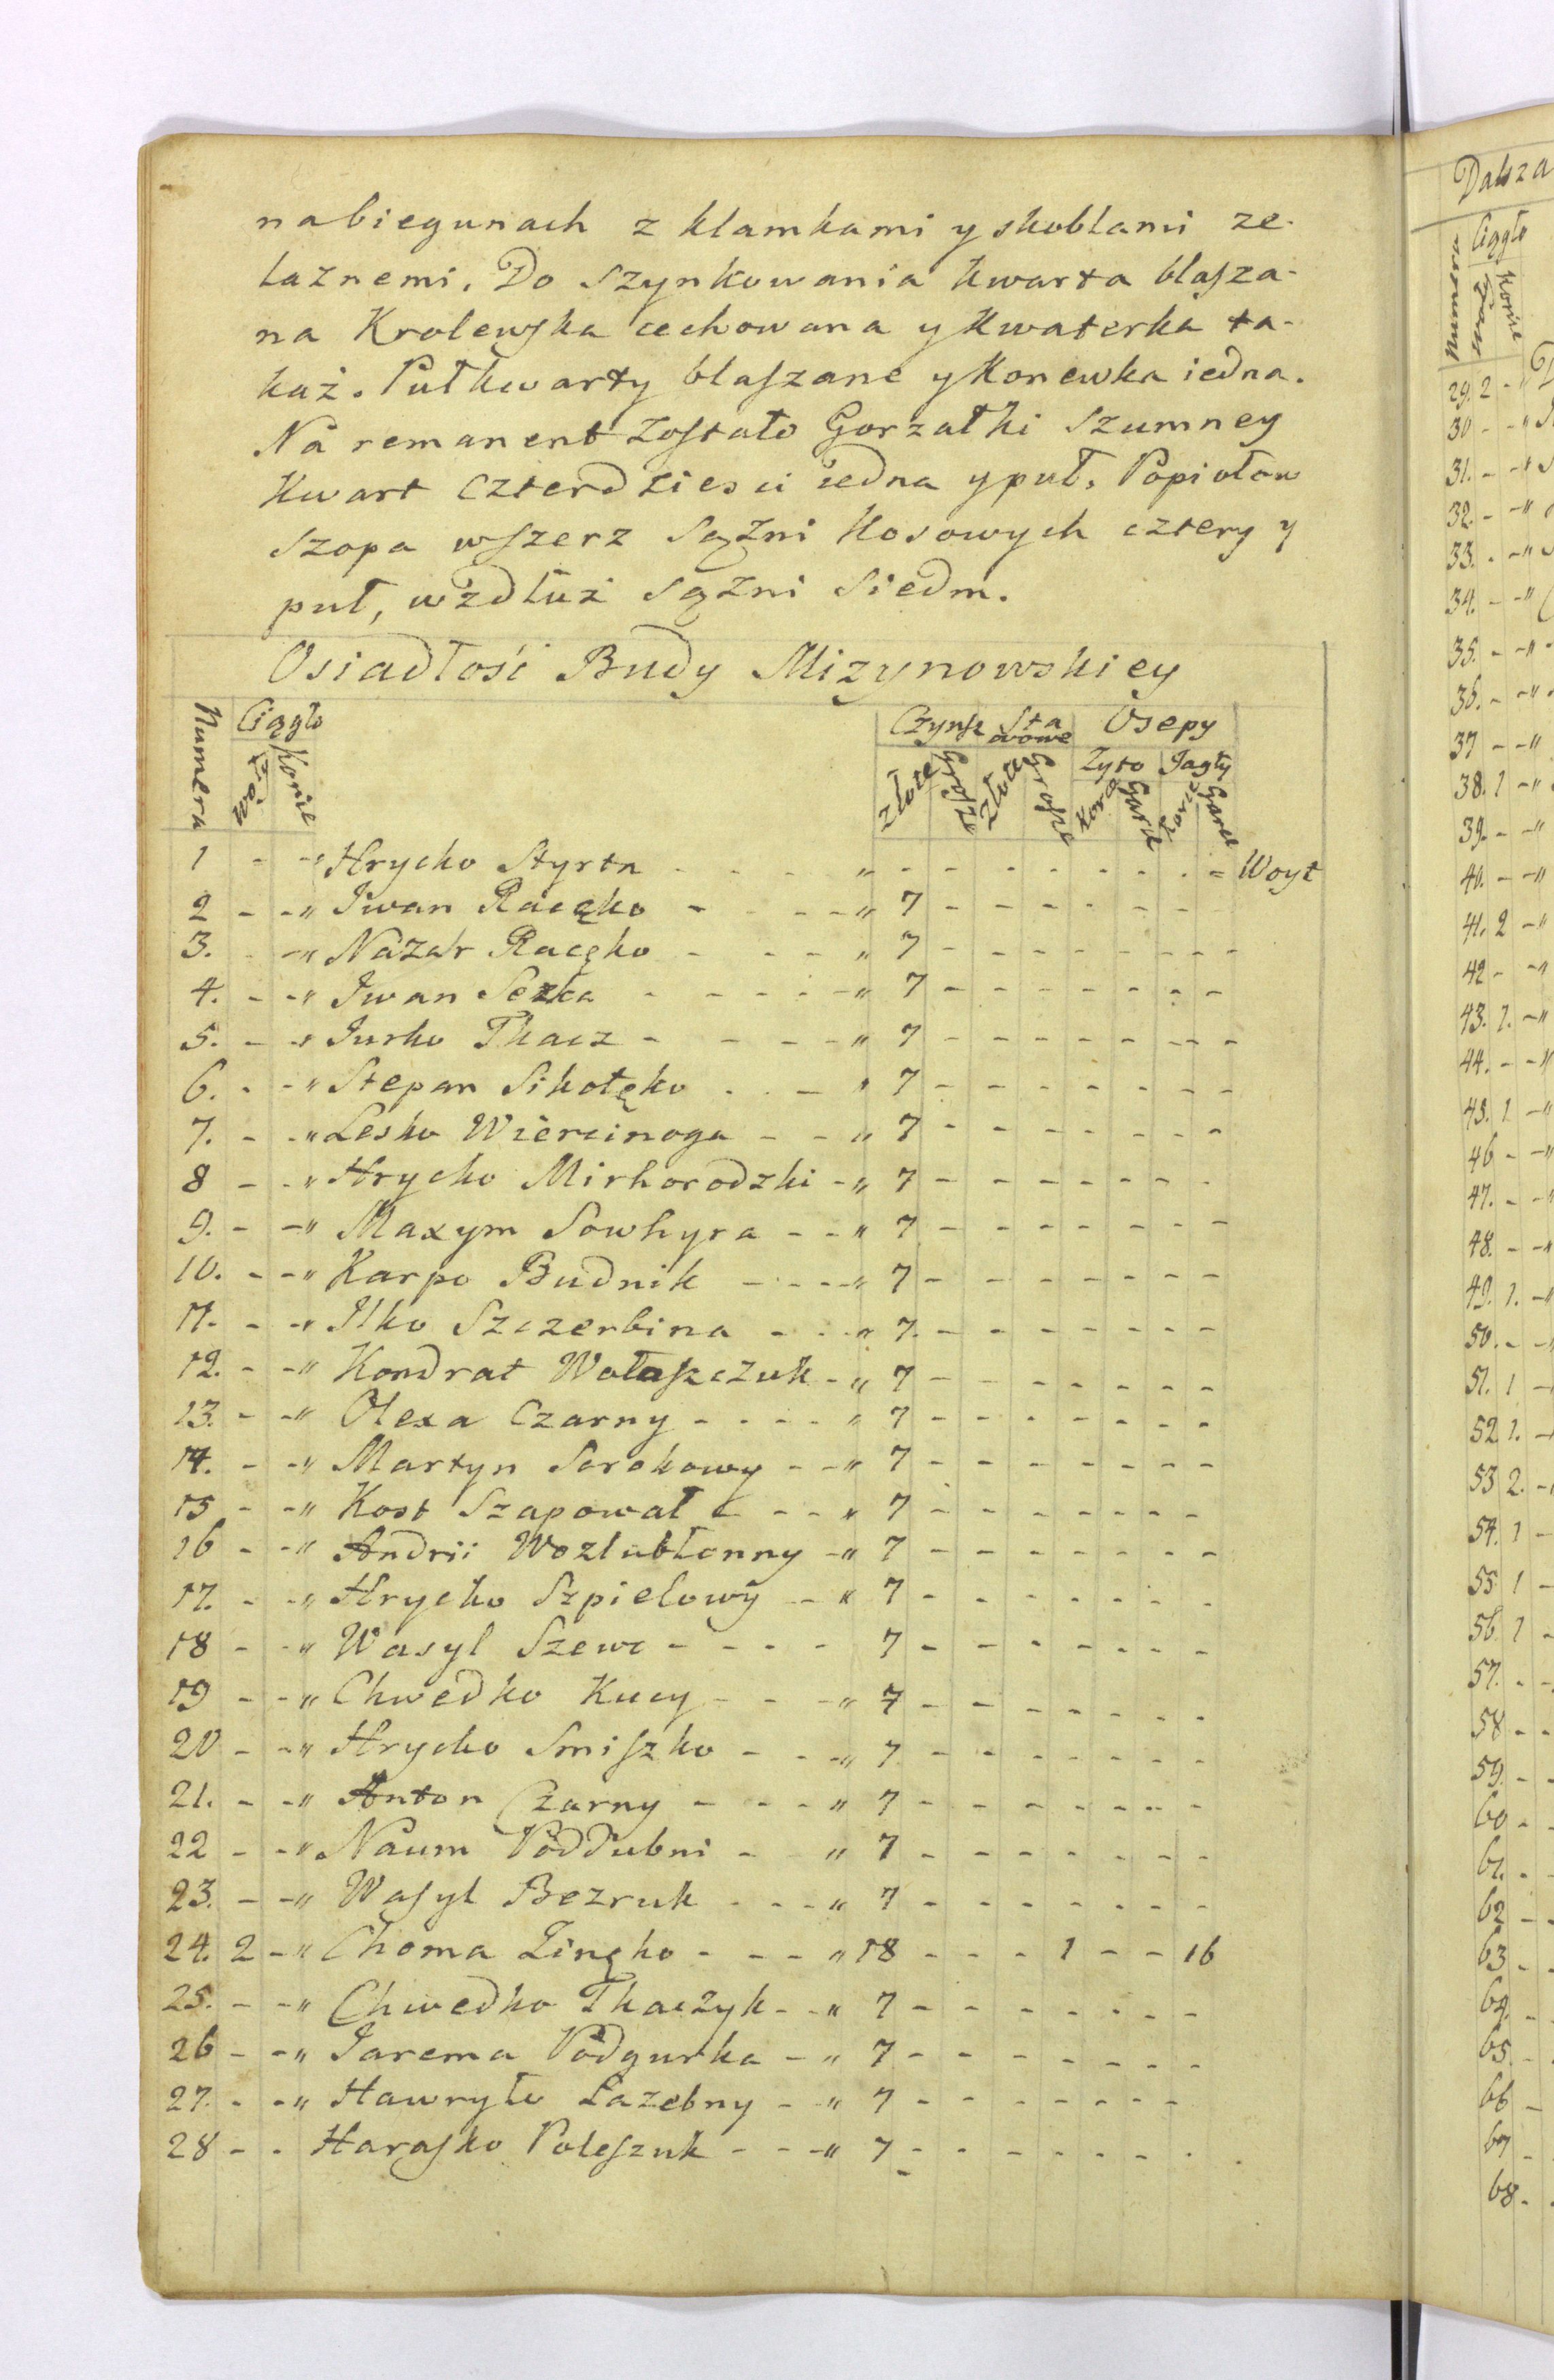 nabiegunach z klamkami y skoblami ze-
laznemi. Do Szynkowania kwarta blasza-
na Krolewska cechowana y kwaterka ta-
każ. Pułkwarty blaszane y Konewka iedna.
Na remanent Zostało Gorzałki Szumney
Kwart Czterdziesci iedna y puł. Popiołow
Szopa wszerz Sążni Kosowych cztery y
puł, wzdłuż Sążni Siedm.
Osiadłość Budy Mizynowskiey
Numera Ciągło Czynsz Sta wowe Osepy
Konie Żyto Jagły
Złote Grosze Złote Grosze Korce Garce Korce Garce
1 - - " Hrycko Styrta - - - " - - - - - - - - = Woyt
2 - - " Iwan Racęko - - - - " 7 - - - - - - -
3. - - " Nazar Racęko - - - - " 7 - - - - - - - -
4. - - " Iwan Sezka - - - - - " 7 - - - - - - -
5. - - " Iurko Tkacz - - - - " 7 - - - - - - - -
6. - - " Stepan Sikołęko - - - " 7 - - - - - - -
7. - - " Lesko Wiercinoga - - " 7 - - - - - - -
8 - - " Hrycko Mirhorodzki - " 7 - - - - - - -
9. - - " Maxym Sowhyra - - " 7 - - - - - - -
10. - - " Karpo Budnik - - - - " 7 - - - - - - -
11. - - " Ilko Szczerbina - - - " 7. - - - - - - -
12. - - " Kondrat Wołaszczuk - " 7 - - - - - - -
13. - - " Olexa Czarny - - - - " 7 - - - - - - -
14. - - " Martyn Sorokowy - - " 7 - - - - - - -
15 - - " Kost Szapował - - - " 7 - - - - - - -
16 - - " Andrii Wozlubłenny - " 7 - - - - - - -
17. - - " Hrycko Szpielowy - - " 7 - - - - - - -
18 - - " Wasyl Szewc - - - - 7 - - - - - - -
19 - - " Chwedko Kucy - - - " 7 - - - - - - -
20 - - " Hrycko Smiszko - - - " 7 - - - - - - -
21. - - " Anton Czarny - - - " 7 - - - - - - -
22 - - " Naum Poddubni - " 7 - - - - - - -
23. - - " Wasyl Bezruk - - - " 7 - - - - - - -
24. 2 - " Choma Zinęko - - - " 18 - - - 1 - - 16
25. - - " Chwedko Tkaczyk - - " 7 - - - - - - -
26 - - " Iarema Podgurka - " 7 - - - - - - -
27. - - " Hawryło Łazebny - " 7 - - - - - - -
28 - - Harasko Poleszuk - - - " 7 - - - - - - -
Dalsza
Numera Ciągło
Konie
29. 2 - "
30 - - "
31. - - "
32. - - "
33. - - "
34. - - "
35. - - "
36. - - "
37 - - "
38. 1 - "
39. - - "
40. - - "
41. 2 - "
42 - - "
43. 1. - "
44. - - "
45. 1 - "
46 - - "
47. - - "
48. - - "
49. 1. - "
50. - - "
51. 1 -
52 1. -
53 2. -
54. 1 -
55 1 -
56. 1 -
57. - -
58 - -
59. - -
60 - -
61. - -
62 - -
63 - -
64. -
65. -
66 -
67 -
68. -